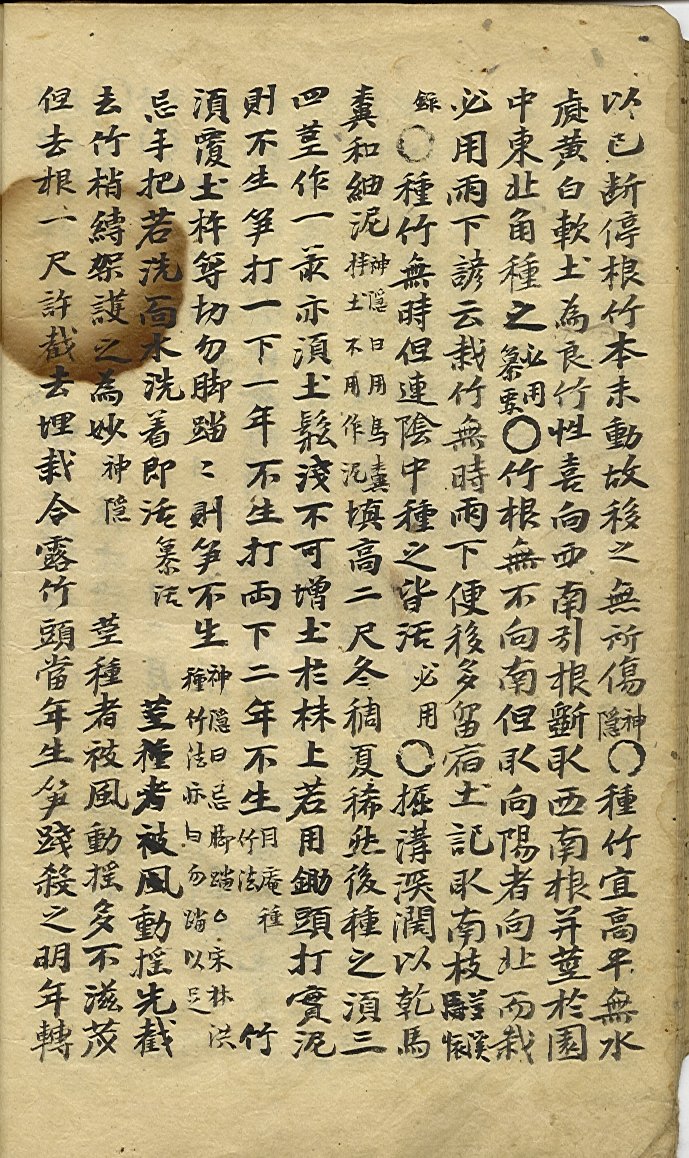 以已斷停根竹本未動故移之無所傷神隱○種竹宜高平無水
處黃白軟土為良竹性喜向西南引根斸取西南根并莖於園
中東北角種之必用纂要○竹根無不向南但取向陽者向北而栽
必用雨下諺云栽竹無時雨下便移多留宿土記取南枝
錄○種竹無時但連陰中種之皆活必用○掘溝深濶以乾馬
糞和細泥神隱曰用馬糞拌土不用作泥填高二尺冬稠夏稀然後種之須三
四莖作一叢亦須土鬆淺不可增土於株上若用鋤頭打實泥
則不生笋打一下一年不生打両下二年不生月庵種竹法 竹
須覆土杵等切勿脚踏〻則笋不生神隱曰忌脚踏○宋林洪種竹法亦曰勿踏以足
忌手把若洗面水洗着即活纂活 莖種者被風動搖先截
去竹梢縛架護之為妙神隱 莖種者被風動搖多不滋茂
但去根一尺許截去埋栽令露竹頭當年生笋踐殺之明年轉